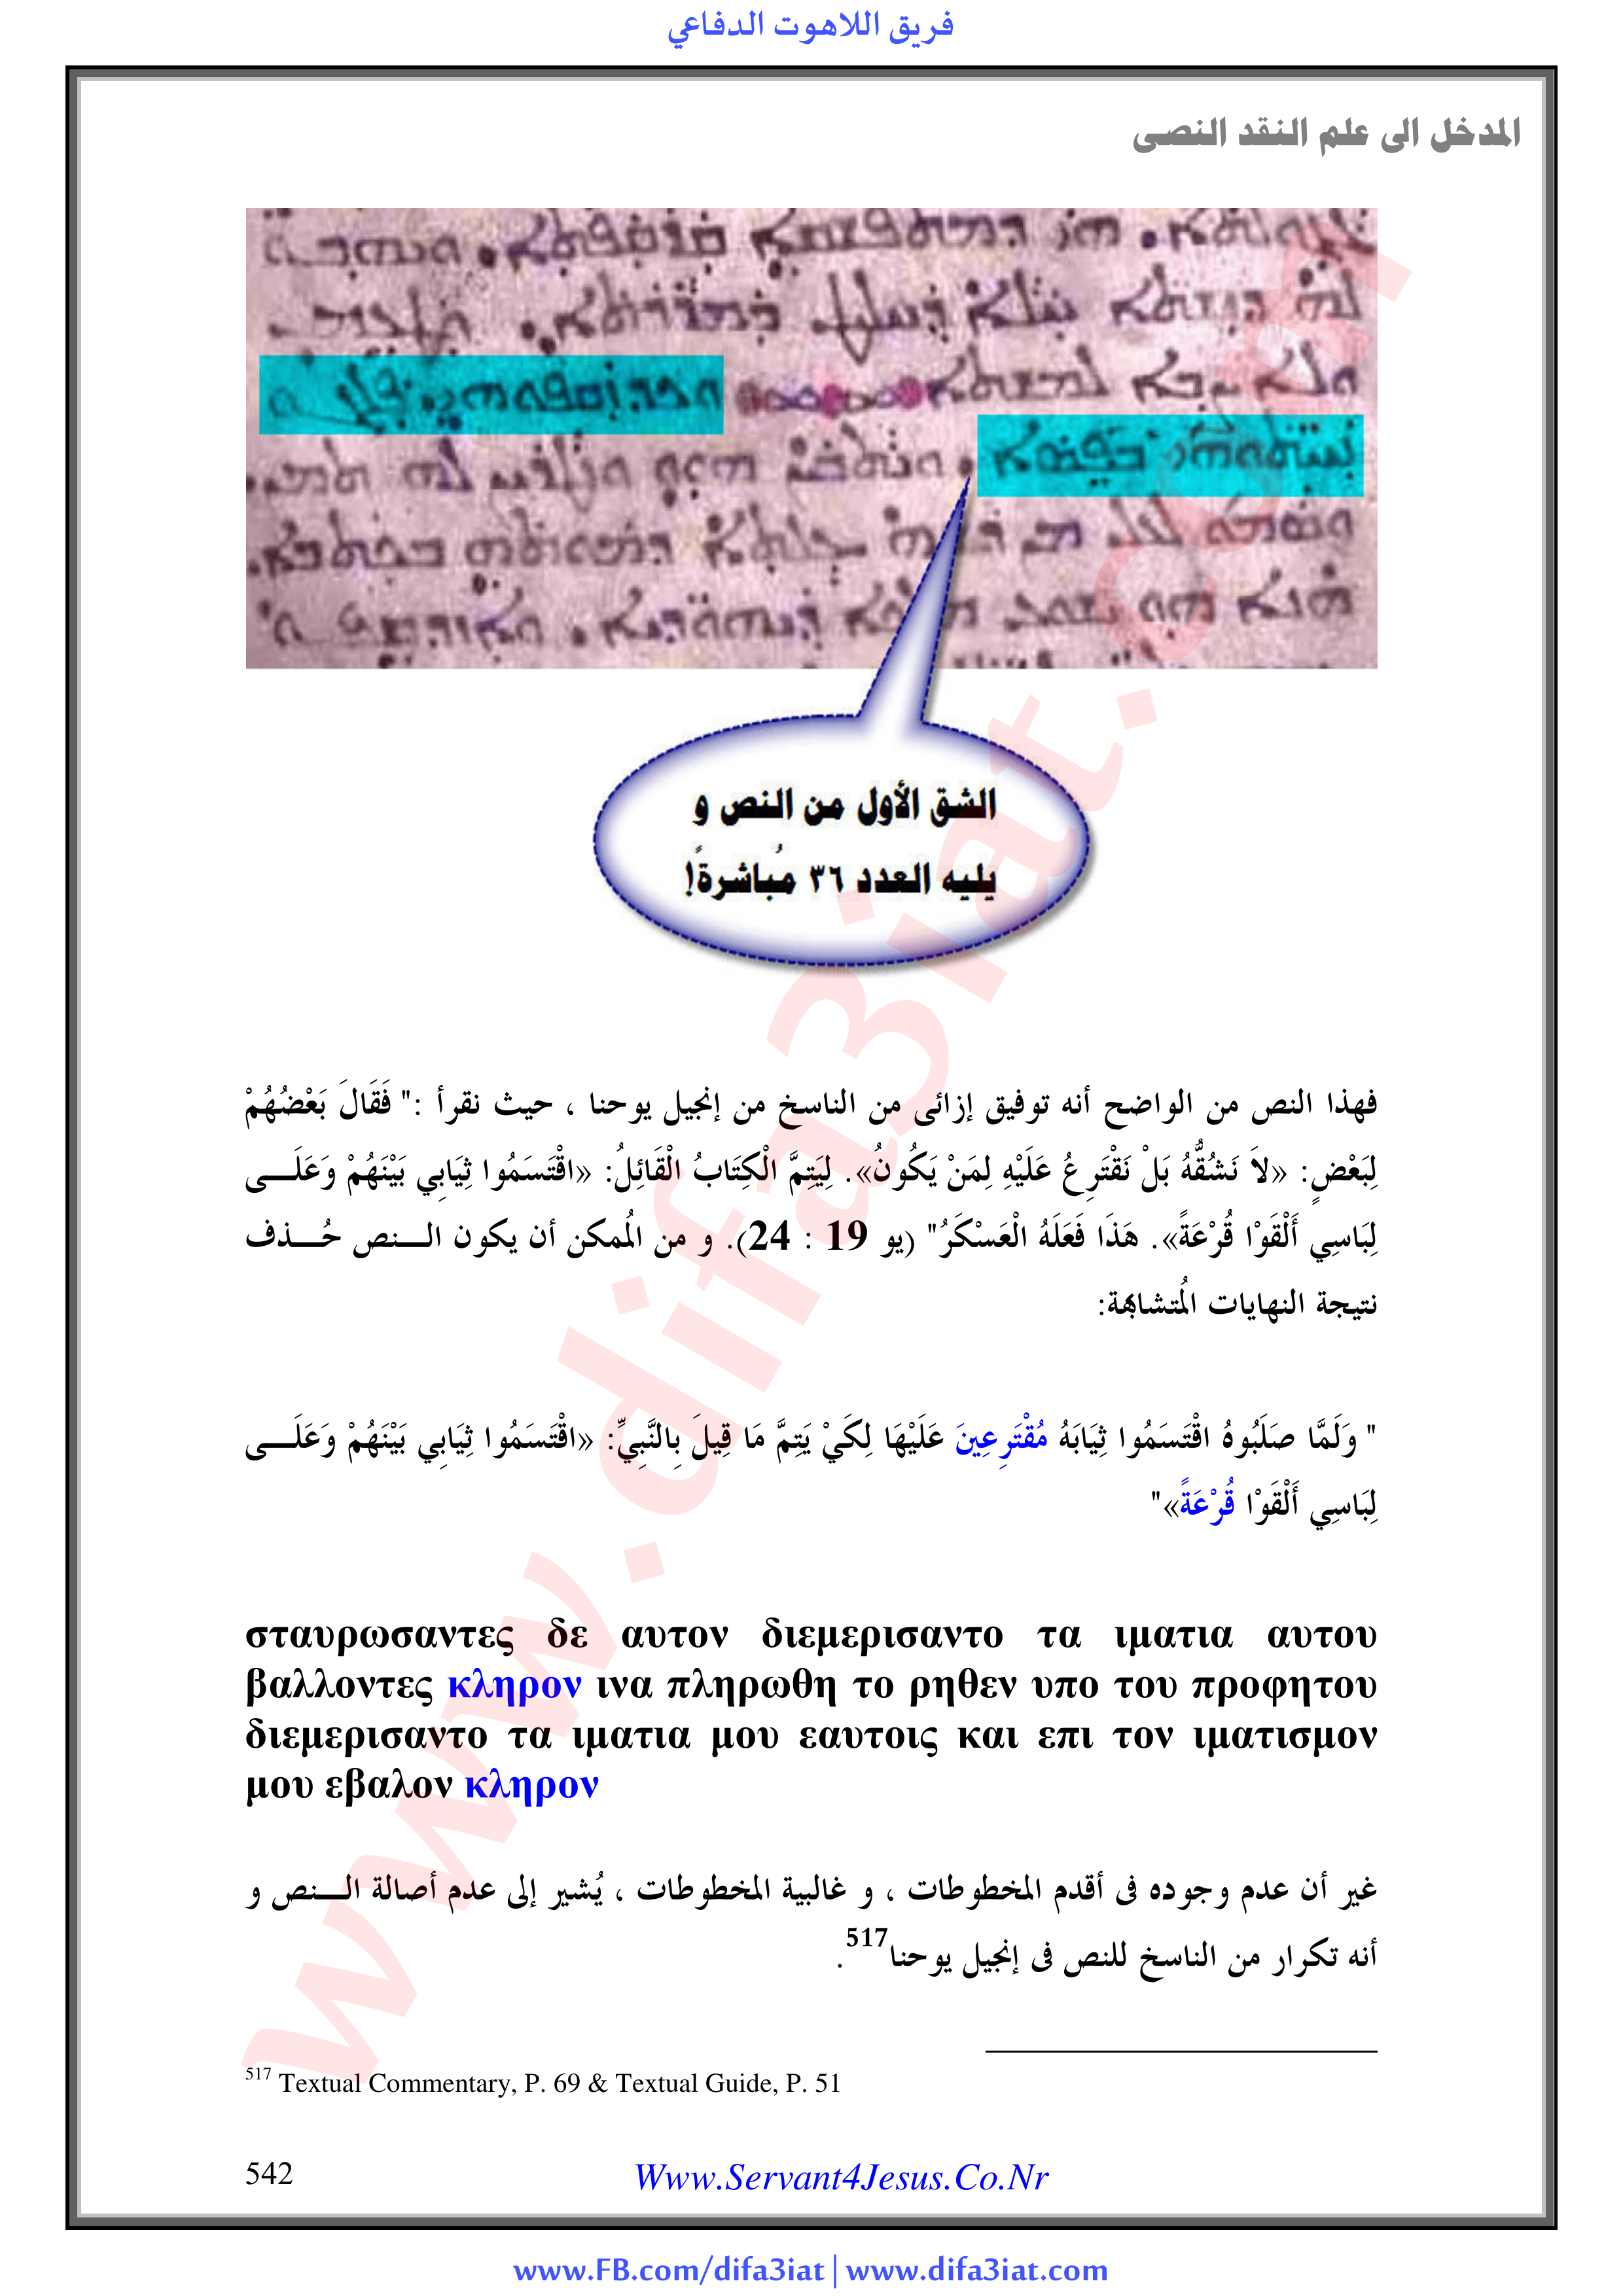 فريق اللاهوت الدفاعي
المدخل الى علم النقد النصى
الشق الأول من النص و
يليه العدد ٣٦ مُباشرةً!
فهذا النص من الواضح أنه توفيق إزائى من الناسخ من إنجيل يوحنا ، حيث نقرأ :" فَقَالَ بَعْضُهُمْ
لِبَعْضٍ: «لاَ نَشُقُّهُ بَلْ نَقْتَرِعُ عَلَيْهِ لِمَنْ يَكُونُ». لِيَتِمَّ الْكِتَابُ الْقَائِلُ: «اقْتَسَمُوا ثِيَابِي بَيْنَهُمْ وَعَلَى
لِبَاسِي أَلْقَوْا قُرْعَةً». هَذَا فَعَلَهُ الْعَسْكَرُ" (يو 19 : 24). و من المُمكن أن يكون النص حُذف
نتيجة النهايات المُتشابهة:
" وَلَمَّا صَلَبُوهُ اقْتَسَمُوا ثِيَابَهُ مُقْتَرِعِينَ عَلَيْهَا لِكَيْ يَتِمَّ مَا قِيلَ بِالنَّبِيِّ: «اقْتَسَمُوا ثِيَابِي بَيْنَهُمْ وَعَلَى
لِبَاسِي أَلْقَوْا قُرْعَةً»"
σταυρωσαντες δε αυτον διεμερισαντο τα ιματια αυτου
βαλλοντες κληρον ινα πληρωθη το ρηθεν υπο του προφητου
διεμερισαντο τα ιματια μου εαυτοις και επι τον ιματισμον
μου εβαλον κληρον
غير أن عدم وجوده فى أقدم المخطوطات ، و غالبية المخطوطات ، يُشير إلى عدم أصالة النص و
أنه تكرار من الناسخ للنص فى إنجيل يوحنا517.
517 Textual Commentary, P. 69 & Textual Guide, P. 51
542
Www.Servant4Jesus.Co.Nr
www.FB.com/difa3iat | www.difa3iat.com
www.difa3iat.com